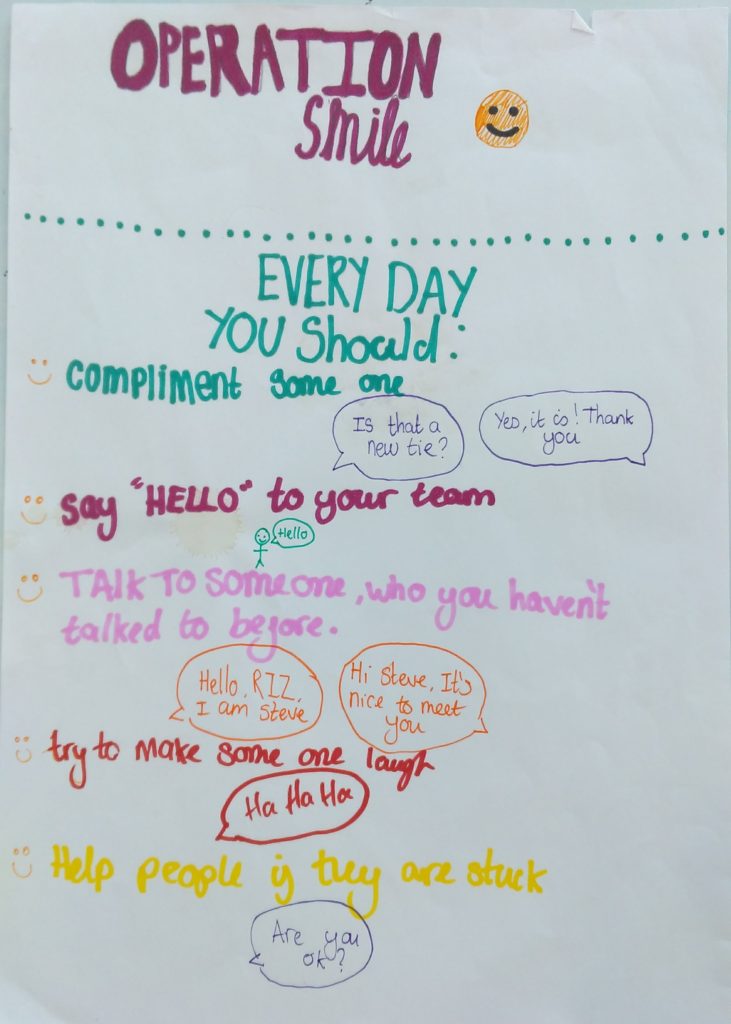 OPERATION
Smile
EVERY DAY
YOU Should:
compliment some one
Is that a
new tie?
Yes, it is! Thank
you
say "HELLO" to your team
Hello
TALK TO someone, who you haven't
talked to before.
Hello, RIZ,
I am Steve
Hi Steve, It's
nice to meet
you
try to make some one laugh
Ha Ha Ha
Help people if they are stuck
Are you
ok?